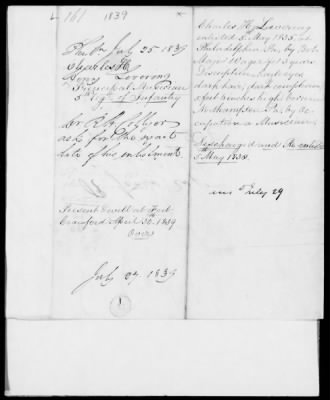 L 161 1839
Phil Pa July 25 1839
Charles H.
Levy Levering
Principal Musician
5th Regt of Infantry
Mr R. W. Collyer
asks for the exact
date of his enlistment
Present & well at Fort
Crawford April 30. 1839
Over
July 27. 1839
1
Charles H. Levering
enlisted 5 May 1835 at
Philadelphia Pa. by Bvt
Major Wager for 3 years
Description hazle eyes
dark hair, dark complexion
5 feet inches high. born in
Northampton Pa. by oc-
cupation a Musician.
Discharged and Re-enlisted
5 May 1838.
ans July 29